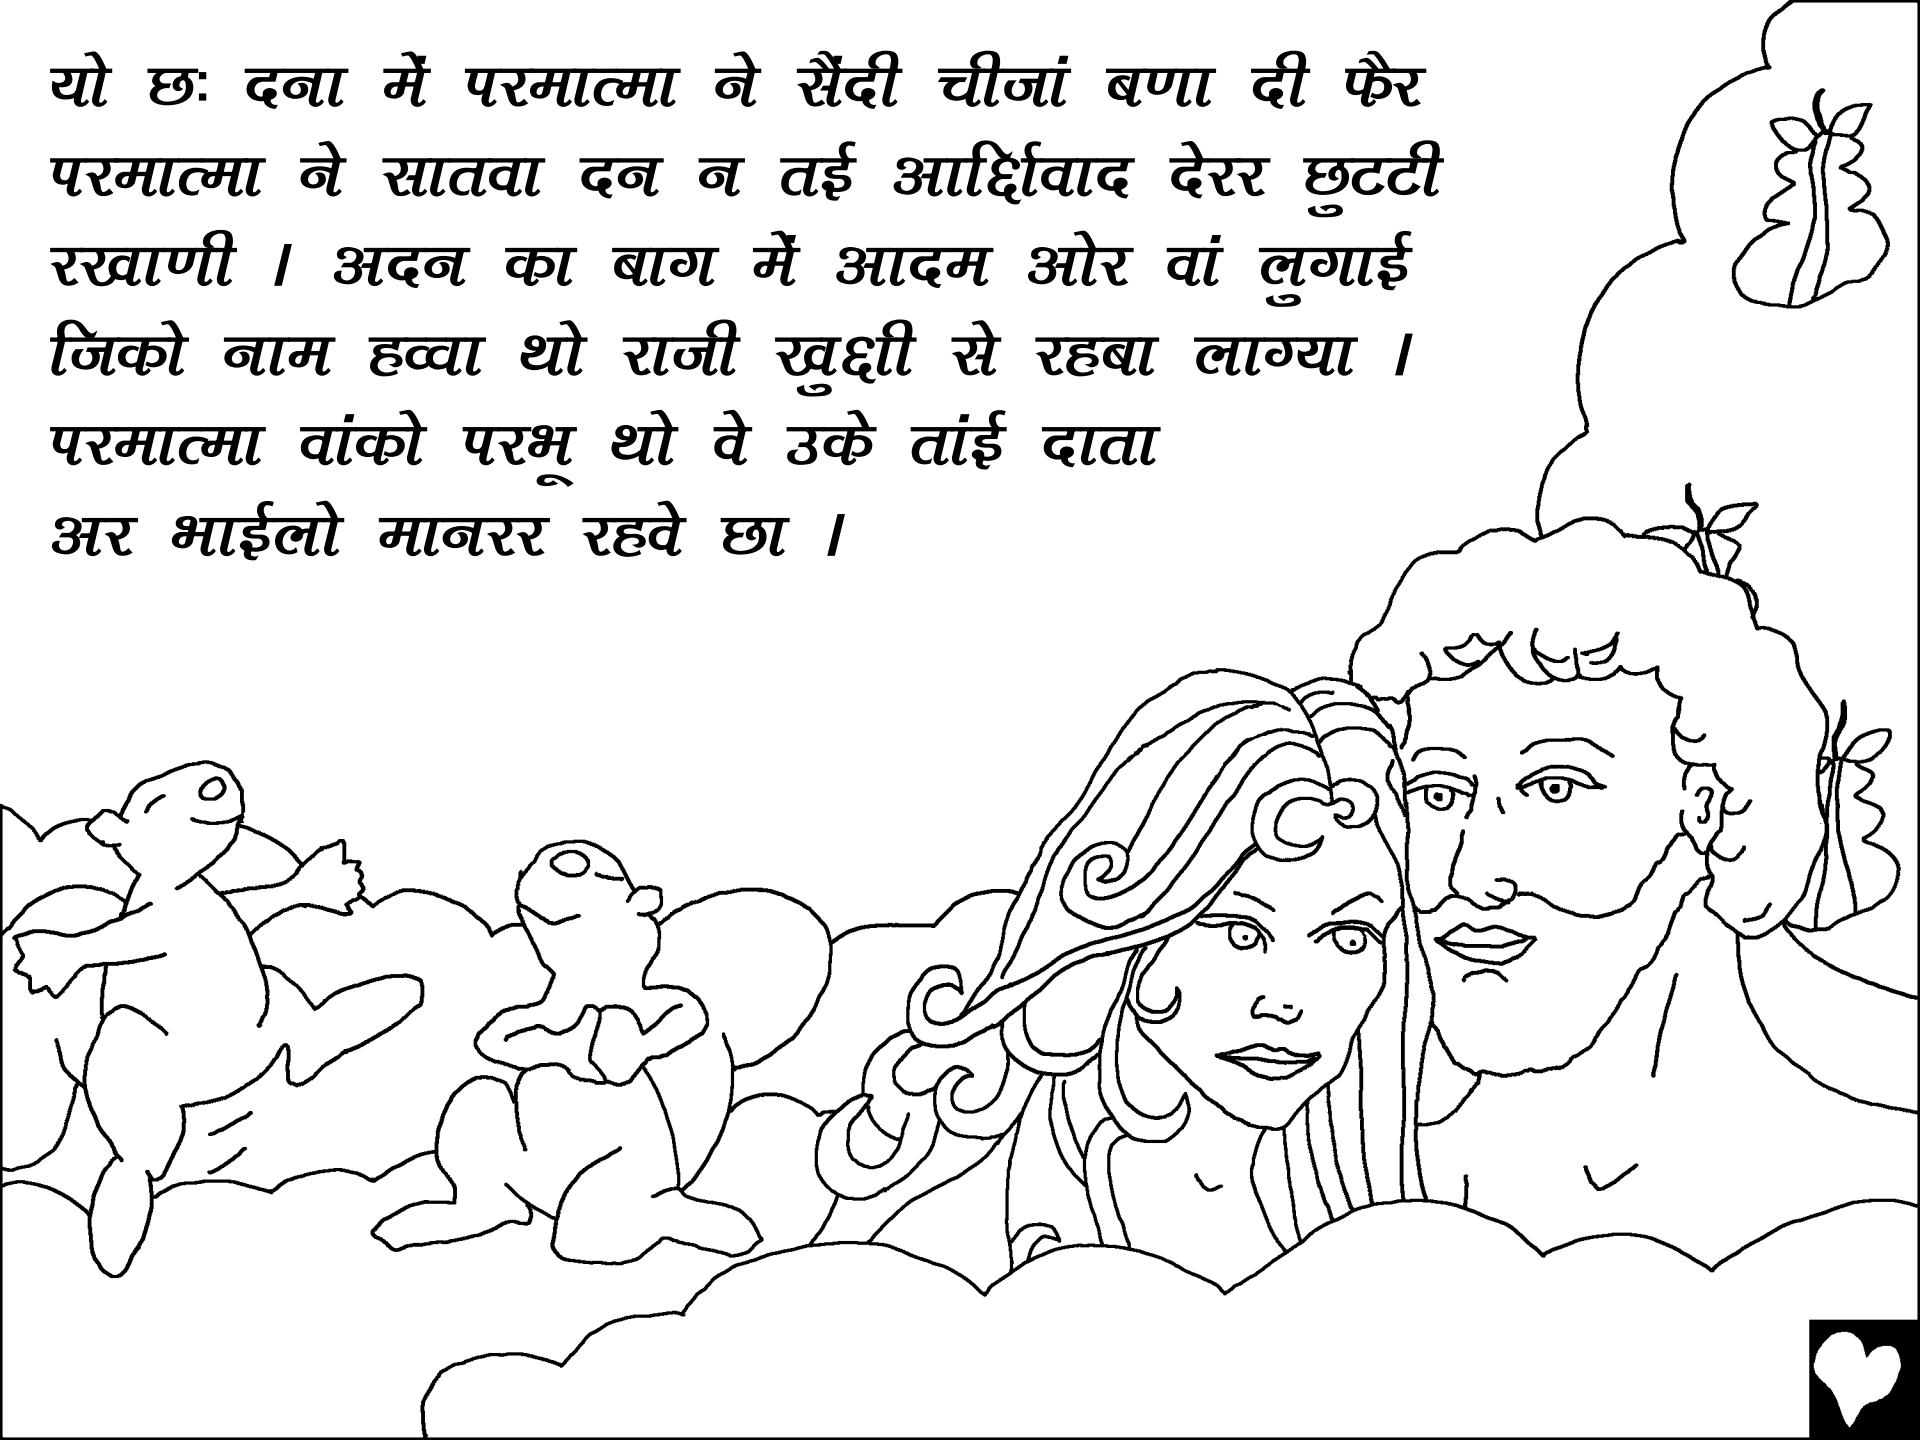 यो छः दना में परमात्मा ने सैंदी चीजां बणा दी फैर
परमात्मा ने सातवा दन न तई आर्शिवाद देरर छुटटी
रखाणी । अदन का बाग में आदम ओर वां लुगाई
जिको नाम हव्वा थो राजी खुशी से रहबा लाग्या ।
परमात्मा वांको परभू थो वे उके तांई दाता
अर भाईलो मानरर रहवे छा ।